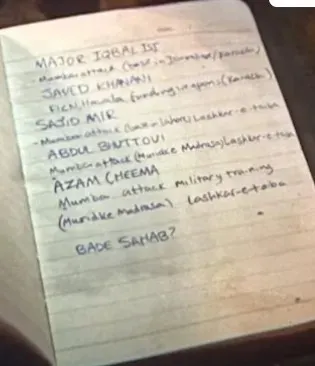 MAJOR IQBAL ISI
- Mumbai attack (base in /Karachi)
JAVED KHANANI
FICN, Hawala funding, weapons (Karachi)
SAJID MIR
- Mumbai attack (base in Lahore) Lashkar-e-taiba
ABDUL BHUTTOVI
Mumbai attack (Muridke Madrasa) Lashkar-e-taiba
AZAM CHEEMA
Mumbai attack military training
(Muridke Madrasa) Lashkar-e-taiba
BADE SAHAB?